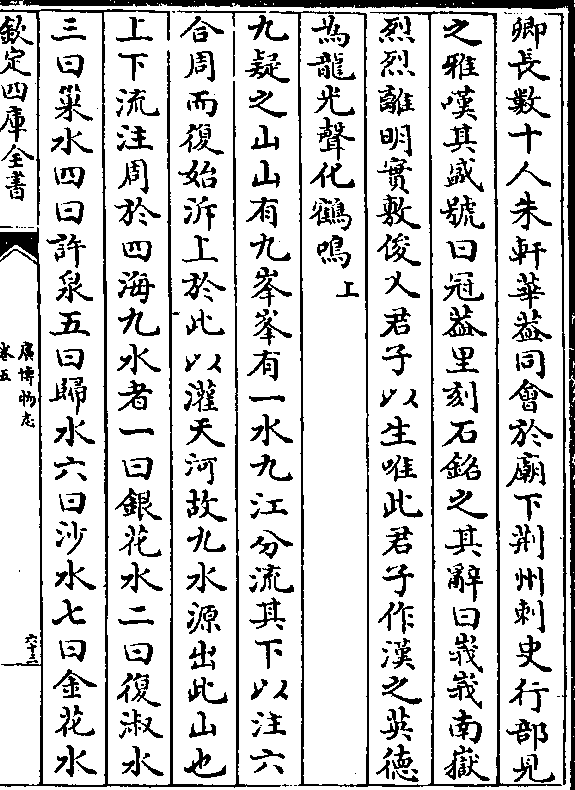 卿長數十人朱軒華葢同會於廟下荆州刺史行部見
之雅嘆其盛號曰冠葢里刻石銘之其辭曰峩峩南嶽
烈烈離明實敷俊乂君子以生唯此君子作漢之英德
為龍光聲化鶴鳴上
九疑之山山有九峯峯有一水九江分流其下以注六
合周而復始泝上於此以灌天河故九水源出此山也
上下流注周於四海九水者一曰銀花水二曰復淑水
三曰巢水四曰許泉五曰歸水六曰沙水七曰金花水
欽定四庫全書
廣博物志
卷五
六十三